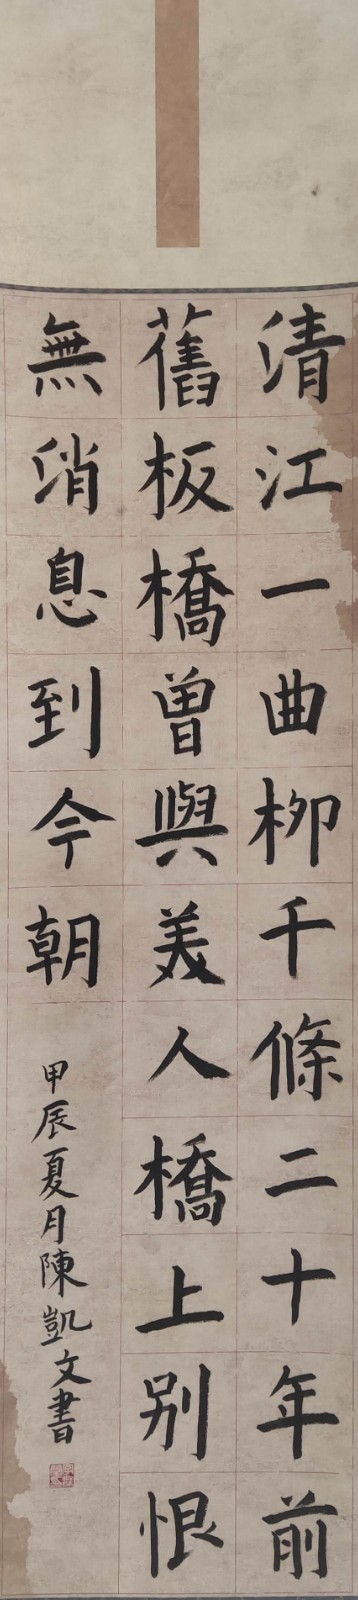 清江一曲柳千條二十年前
舊板橋曾與美人橋上别恨
無消息到今朝
甲辰夏月陳凱文書